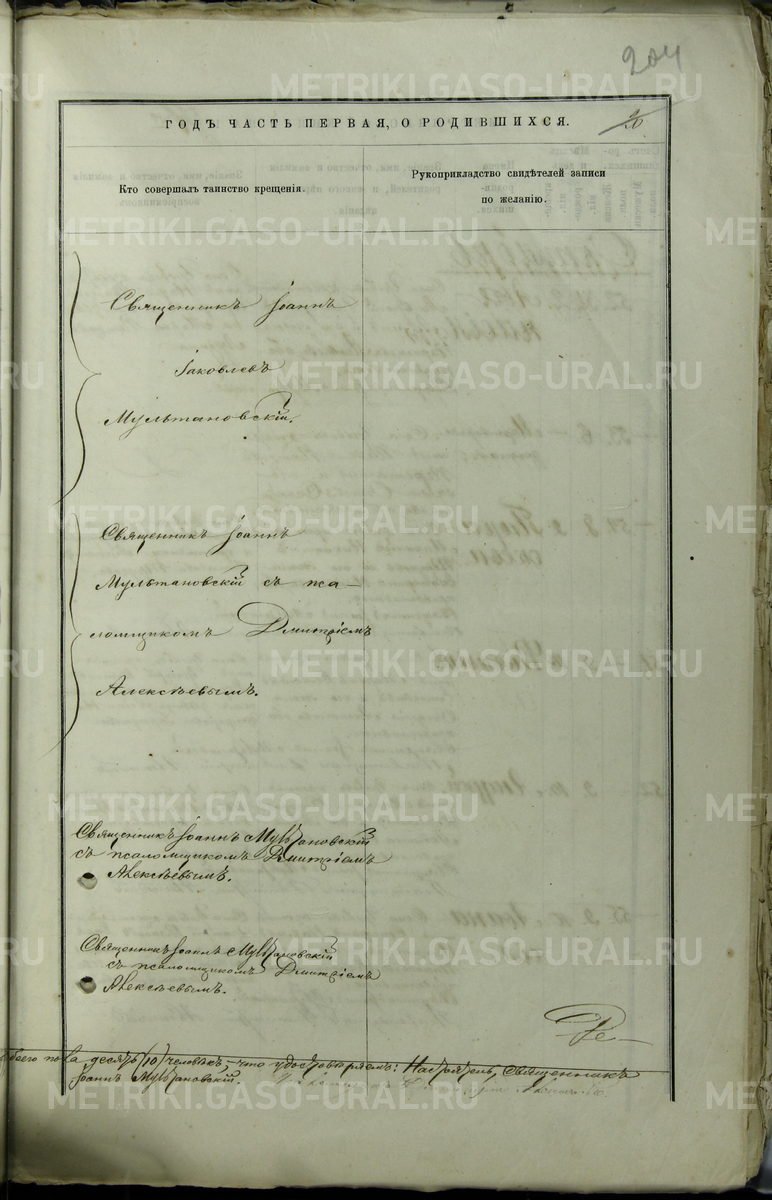 204
ГОДЪ ЧАСТЬ ПЕРВАЯ, О РОДИВШИХСЯ.
26.
Кто совершалъ таинство крещенія.
Рукоприкладство свидѣтелей записи
по желанію.
Священникъ Іоаннъ
Іаковлевъ
Мультановскій.
Священникъ Іоаннъ
Мультановскій съ пса-
ломщикомъ Димитріемъ
Алексѣевымъ.
Священникъ Іоаннъ Мультановскій
съ псаломщикомъ Димитріемъ
Алексѣевымъ.
Священникъ Іоаннъ Мультановскій
съ псаломщикомъ Димитріемъ
Алексѣевымъ.
боего пола десять (10) человѣкъ, – что удостовѣряемъ: Настоятель, Священникъ
Іоаннъ Мультановскій.
METRIKI.GASO-URAL.RU